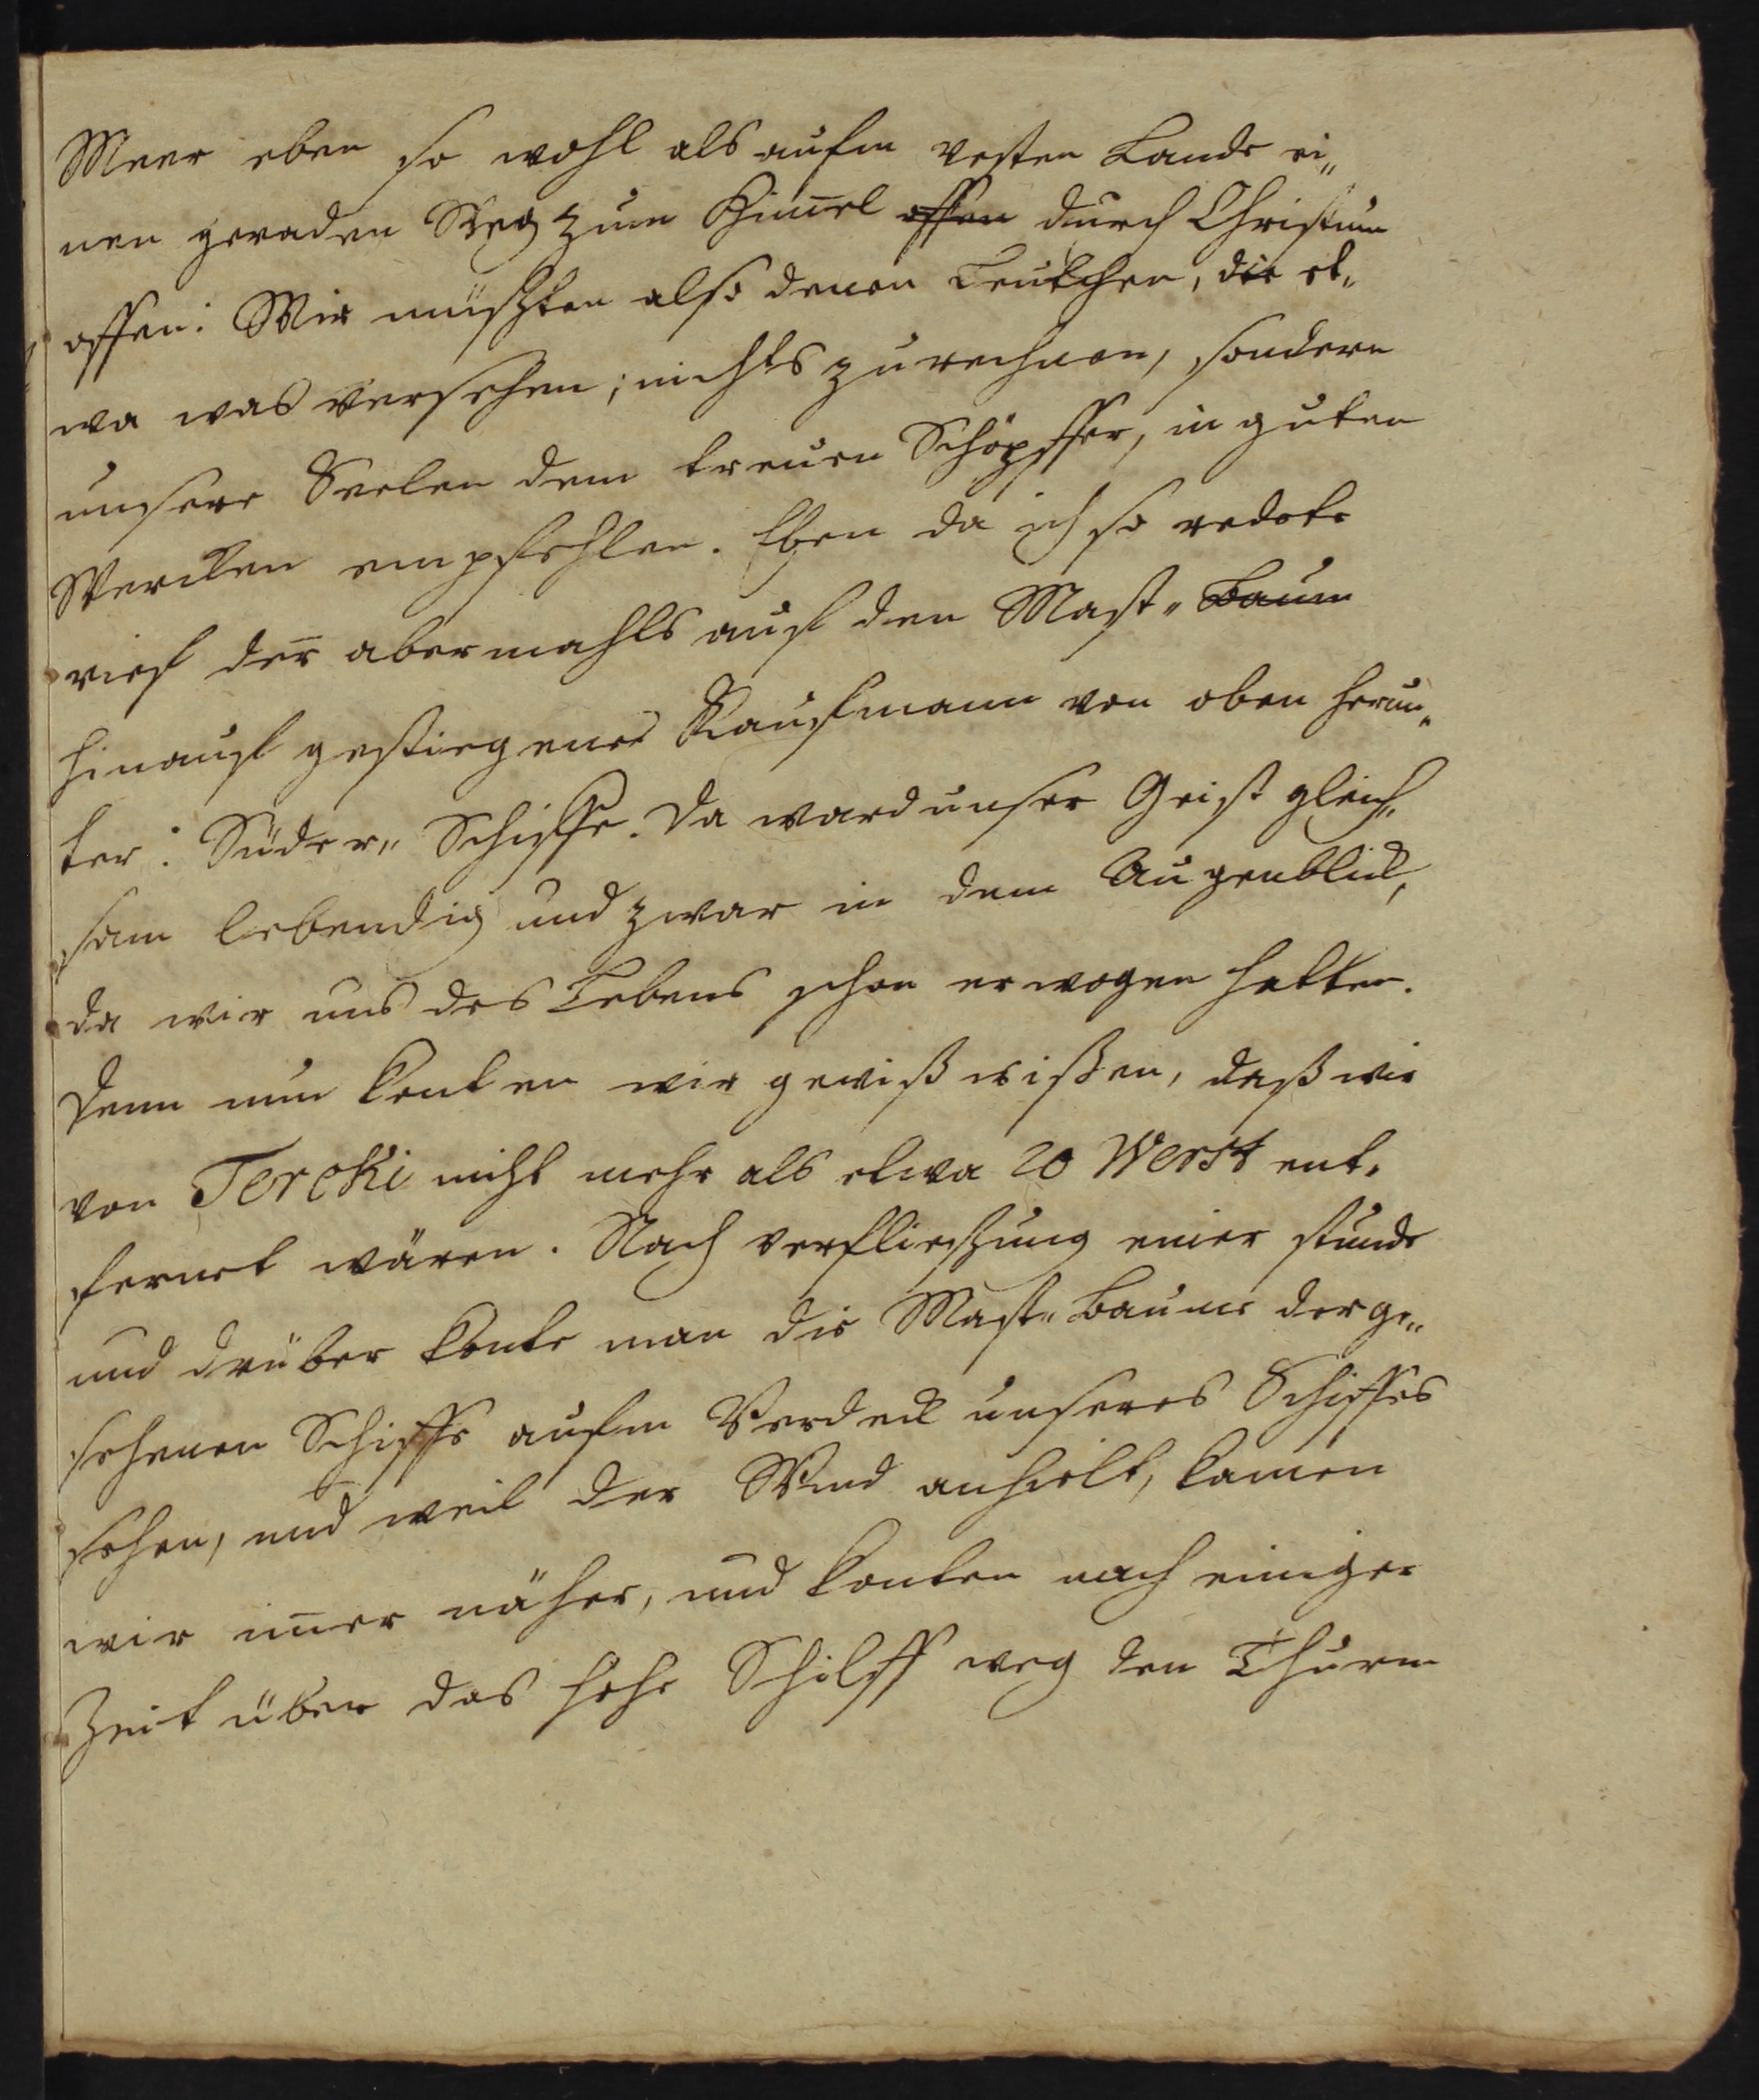 Meer eben so wohl als aufm vesten Lande ei„
nen geraden Weg zum Him̄el offen durch Christum
offen: Wir müszten also denen Leutchen, die et„
wa was versehen; nichts zurechnen, sondern
unsere Seelen dem treuen Schöpffer, in guten
Wercken empfehlen. Eben da ich so redete
rief der abermahls auf den Mast„Baum
hinauf gestiegene Kaufmann von oben herun„
ter: Süder„Schiffe. Da ward unser Geist gleich„
sam lebendig und zwar in dem Augenblick,
da wir uns des Lebens schon erwogen hatten.
Denn nun konten wir gewiß wißen, daß wir
von Tercki nicht mehr als etwa 20 Werst ent„
fernet wären. Nach verflieszung einer stunde
und drüber konte man die Mast„Baume der ge„
sehenen Schiffe aufm Verdeck unseres Schiffes
sehen, und weil der Wind anhielt, kamen
wir im̄er näher, und konten nach einiger
Zeit über das hohe Schilff weg den Thurm